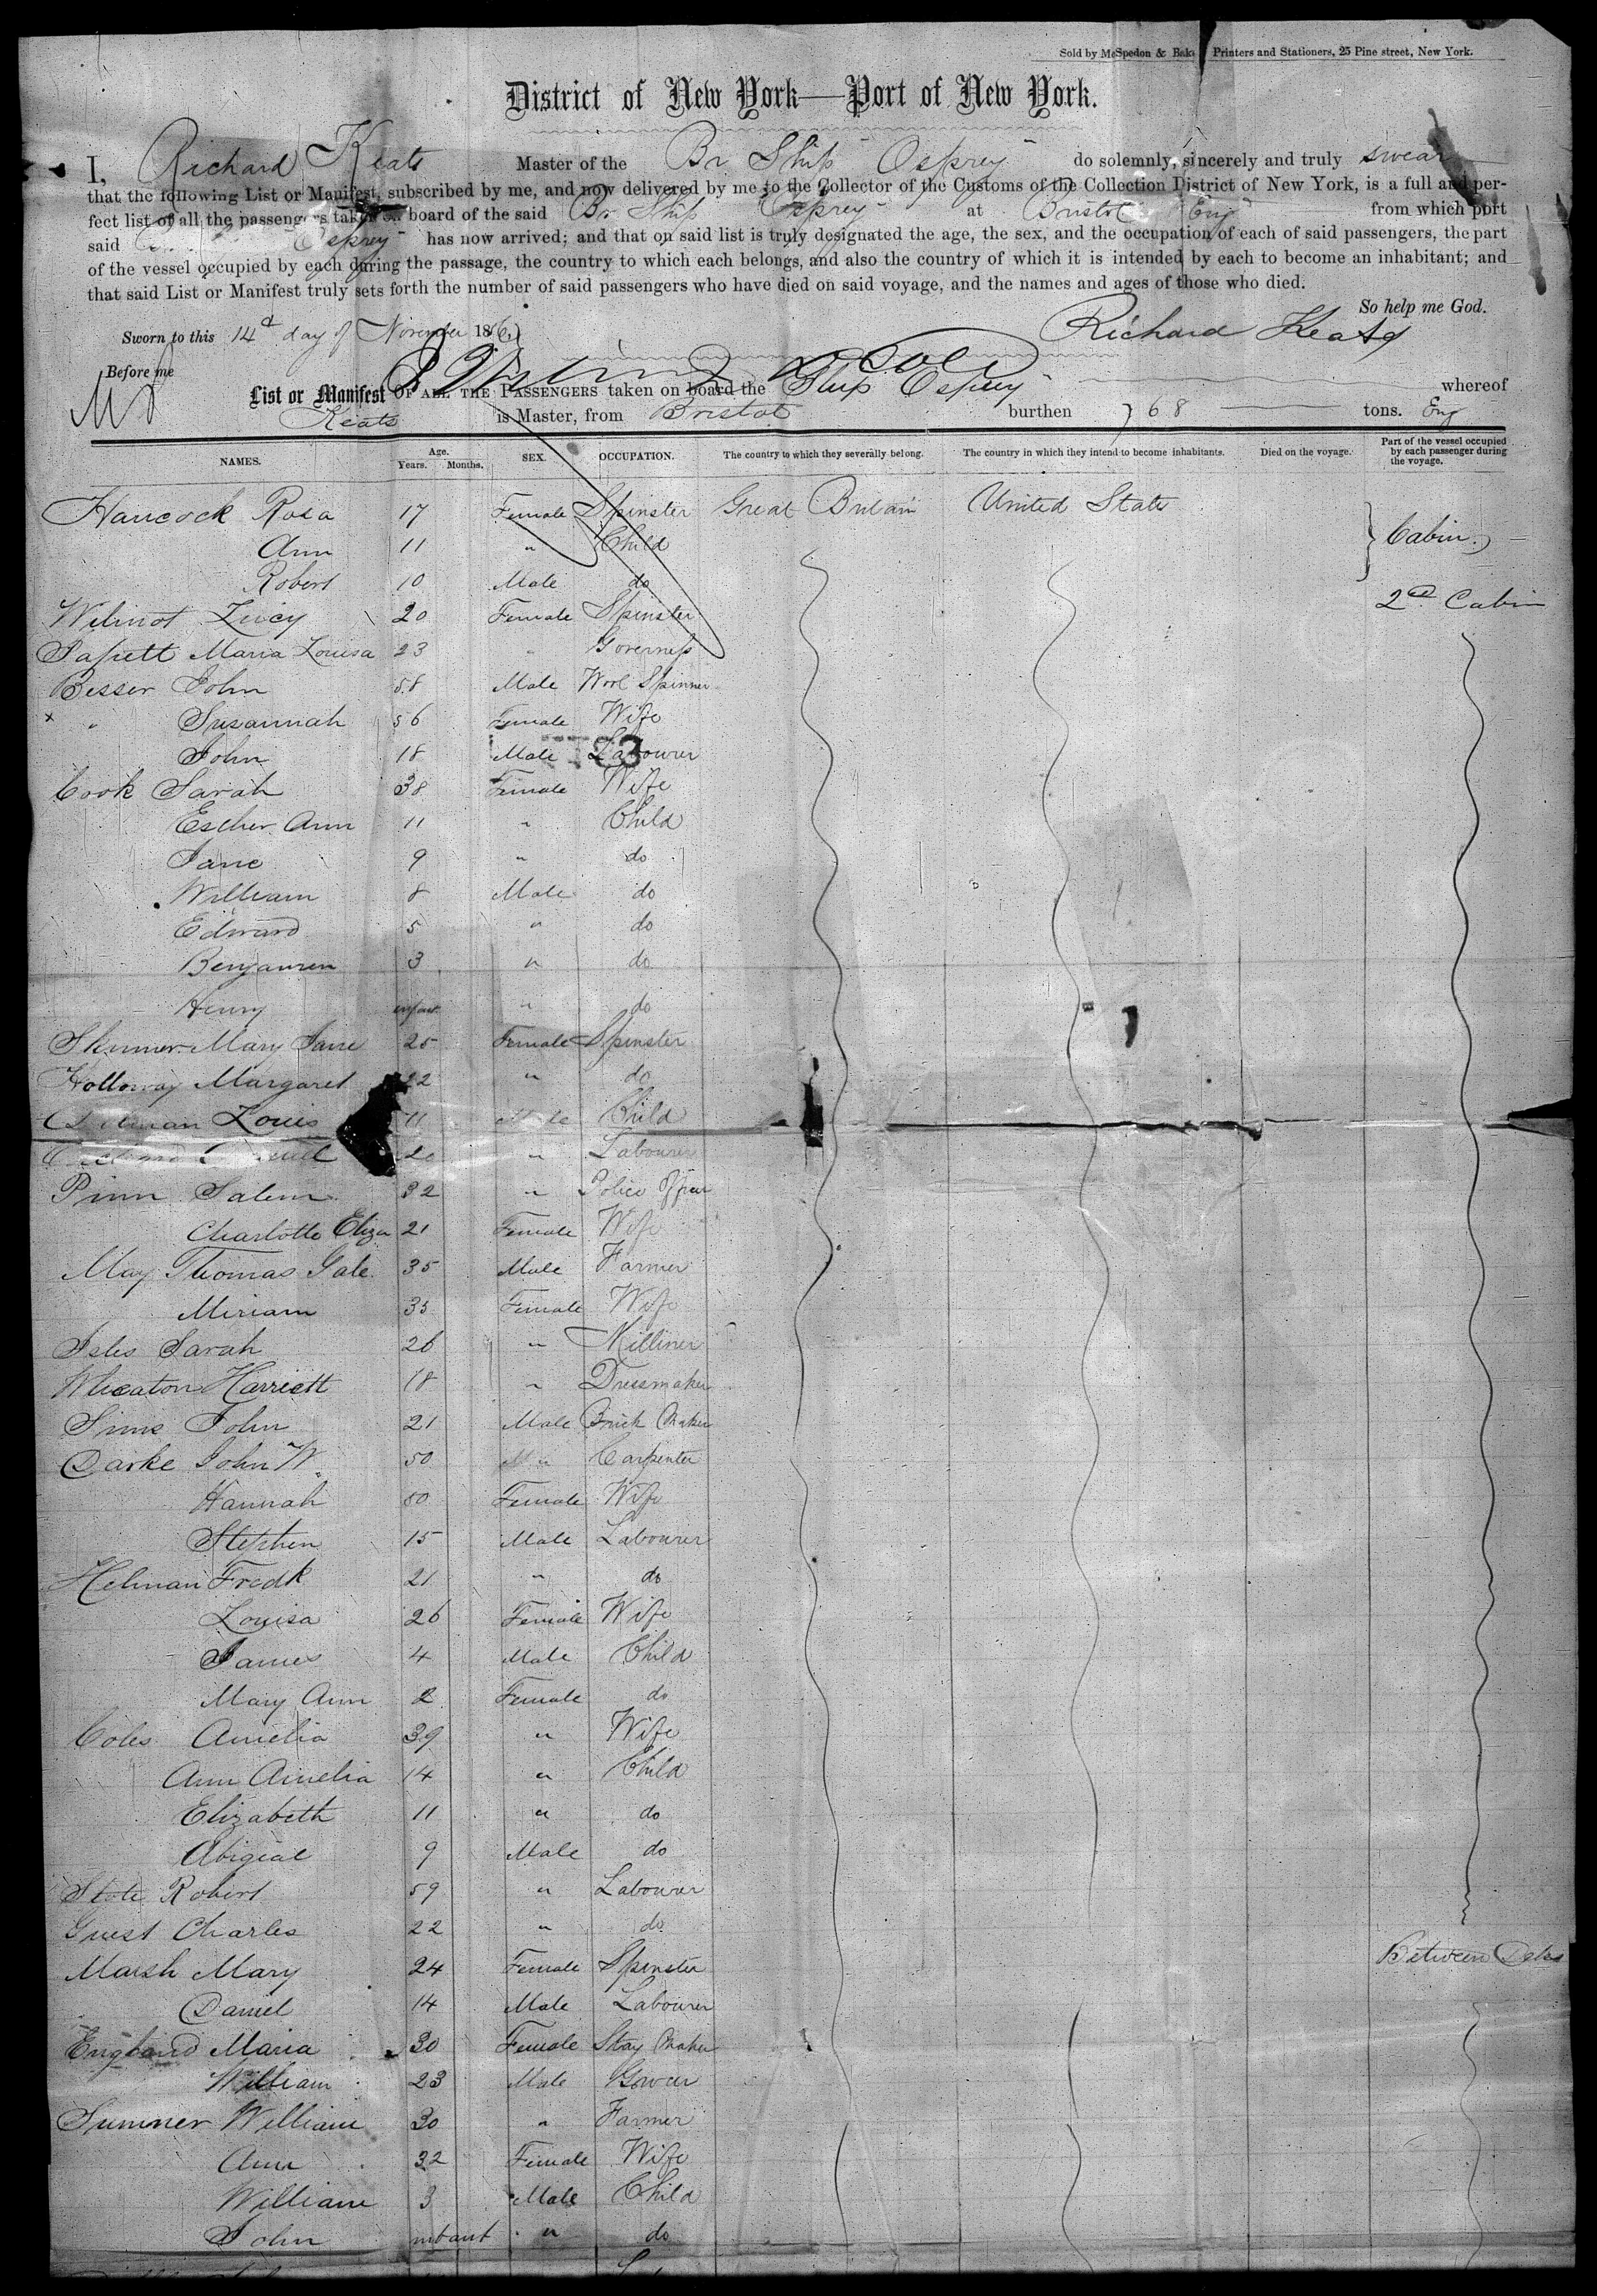 Sold by McSpedon & Bak Printers and Stationers, 25 Pine street, New York.
District of New York—Port of New York.
I, Richard Keats Master of the Br Ship Osprey do solemnly, sincerely and truly swear
that the following List or Manifest, subscribed by me, and now delivered by me to the Collector of the Customs of the Collection District of New York, is a full and per-
fect list of all the passengers taken on board of the said Br Ship Osprey at Bristol Eng from which port
said Osprey has now arrived; and that on said list is truly designated the age, the sex, and the occupation of each of said passengers, the part
of the vessel occupied by each during the passage, the country to which each belongs, and also the country of which it is intended by each to become an inhabitant; and
that said List or Manifest truly sets forth the number of said passengers who have died on said voyage, and the names and ages of those who died.
So help me God.
Sworn to this 14th day of November 186 Richard Keats
Before me
List or Manifest OF ALL THE PASSENGERS taken on board the Ship Osprey whereof
Keats is Master, from Bristol burthen 68 tons. Eng
NAMES. Age. Years. Months. SEX. OCCUPATION. The country to which they severally belong. The country in which they intend to become inhabitants. Died on the voyage. Part of the vessel occupied by each passenger during the voyage.
Hancock Rosa 17 Female Spinster Great Britain United States
Ann 11 " Child Cabin
Robert 10 Male do
Wilmot Lucy 20 Female Spinster 2nd Cabin
Maria Louisa 23 " Governess
Besser John 58 Male Wool Spinner
" Susannah 56 Female Wife
John 18 Male Labourer
Cook Sarah 38 Female Wife
Esther Ann 11 " Child
Jane 9 " do
William 8 Male do
Edward 5 " do
Benjamin 3 " do
Henry infant " do
Skinner Mary Jane 25 Female Spinster
Holloway Margaret 22 " do
Louis 11 Male Child
20 " Labourer
Pinn Salem 32 " Police Officer
Charlotte Eliza 21 Female Wife
May Thomas Gale 35 Male Farmer
Miriam 35 Female Wife
Isles Sarah 26 " Milliner
Wheaton Harriett 18 " Dressmaker
Sims John 21 Male Brick Maker
Darke John W. 50 " Carpenter
Hannah 50 Female Wife
Stephen 15 Male Labourer
Helman Fredk 21 " do
Louisa 26 Female Wife
James 4 Male Child
Mary Ann 2 Female do
Coles Amelia 39 " Wife
Ann Amelia 14 " Child
Elizabeth 11 " do
Abigial 9 Male do
Stote Robert 59 " Labourer
Guest Charles 22 " do
Marsh Mary 24 Female Spinster Between Decks
Daniel 14 Male Labourer
England Maria 30 Female Stay Maker
William 23 Male
Sumner William 30 " Farmer
Ann 32 Female Wife
William 3 Male Child
John infant " do